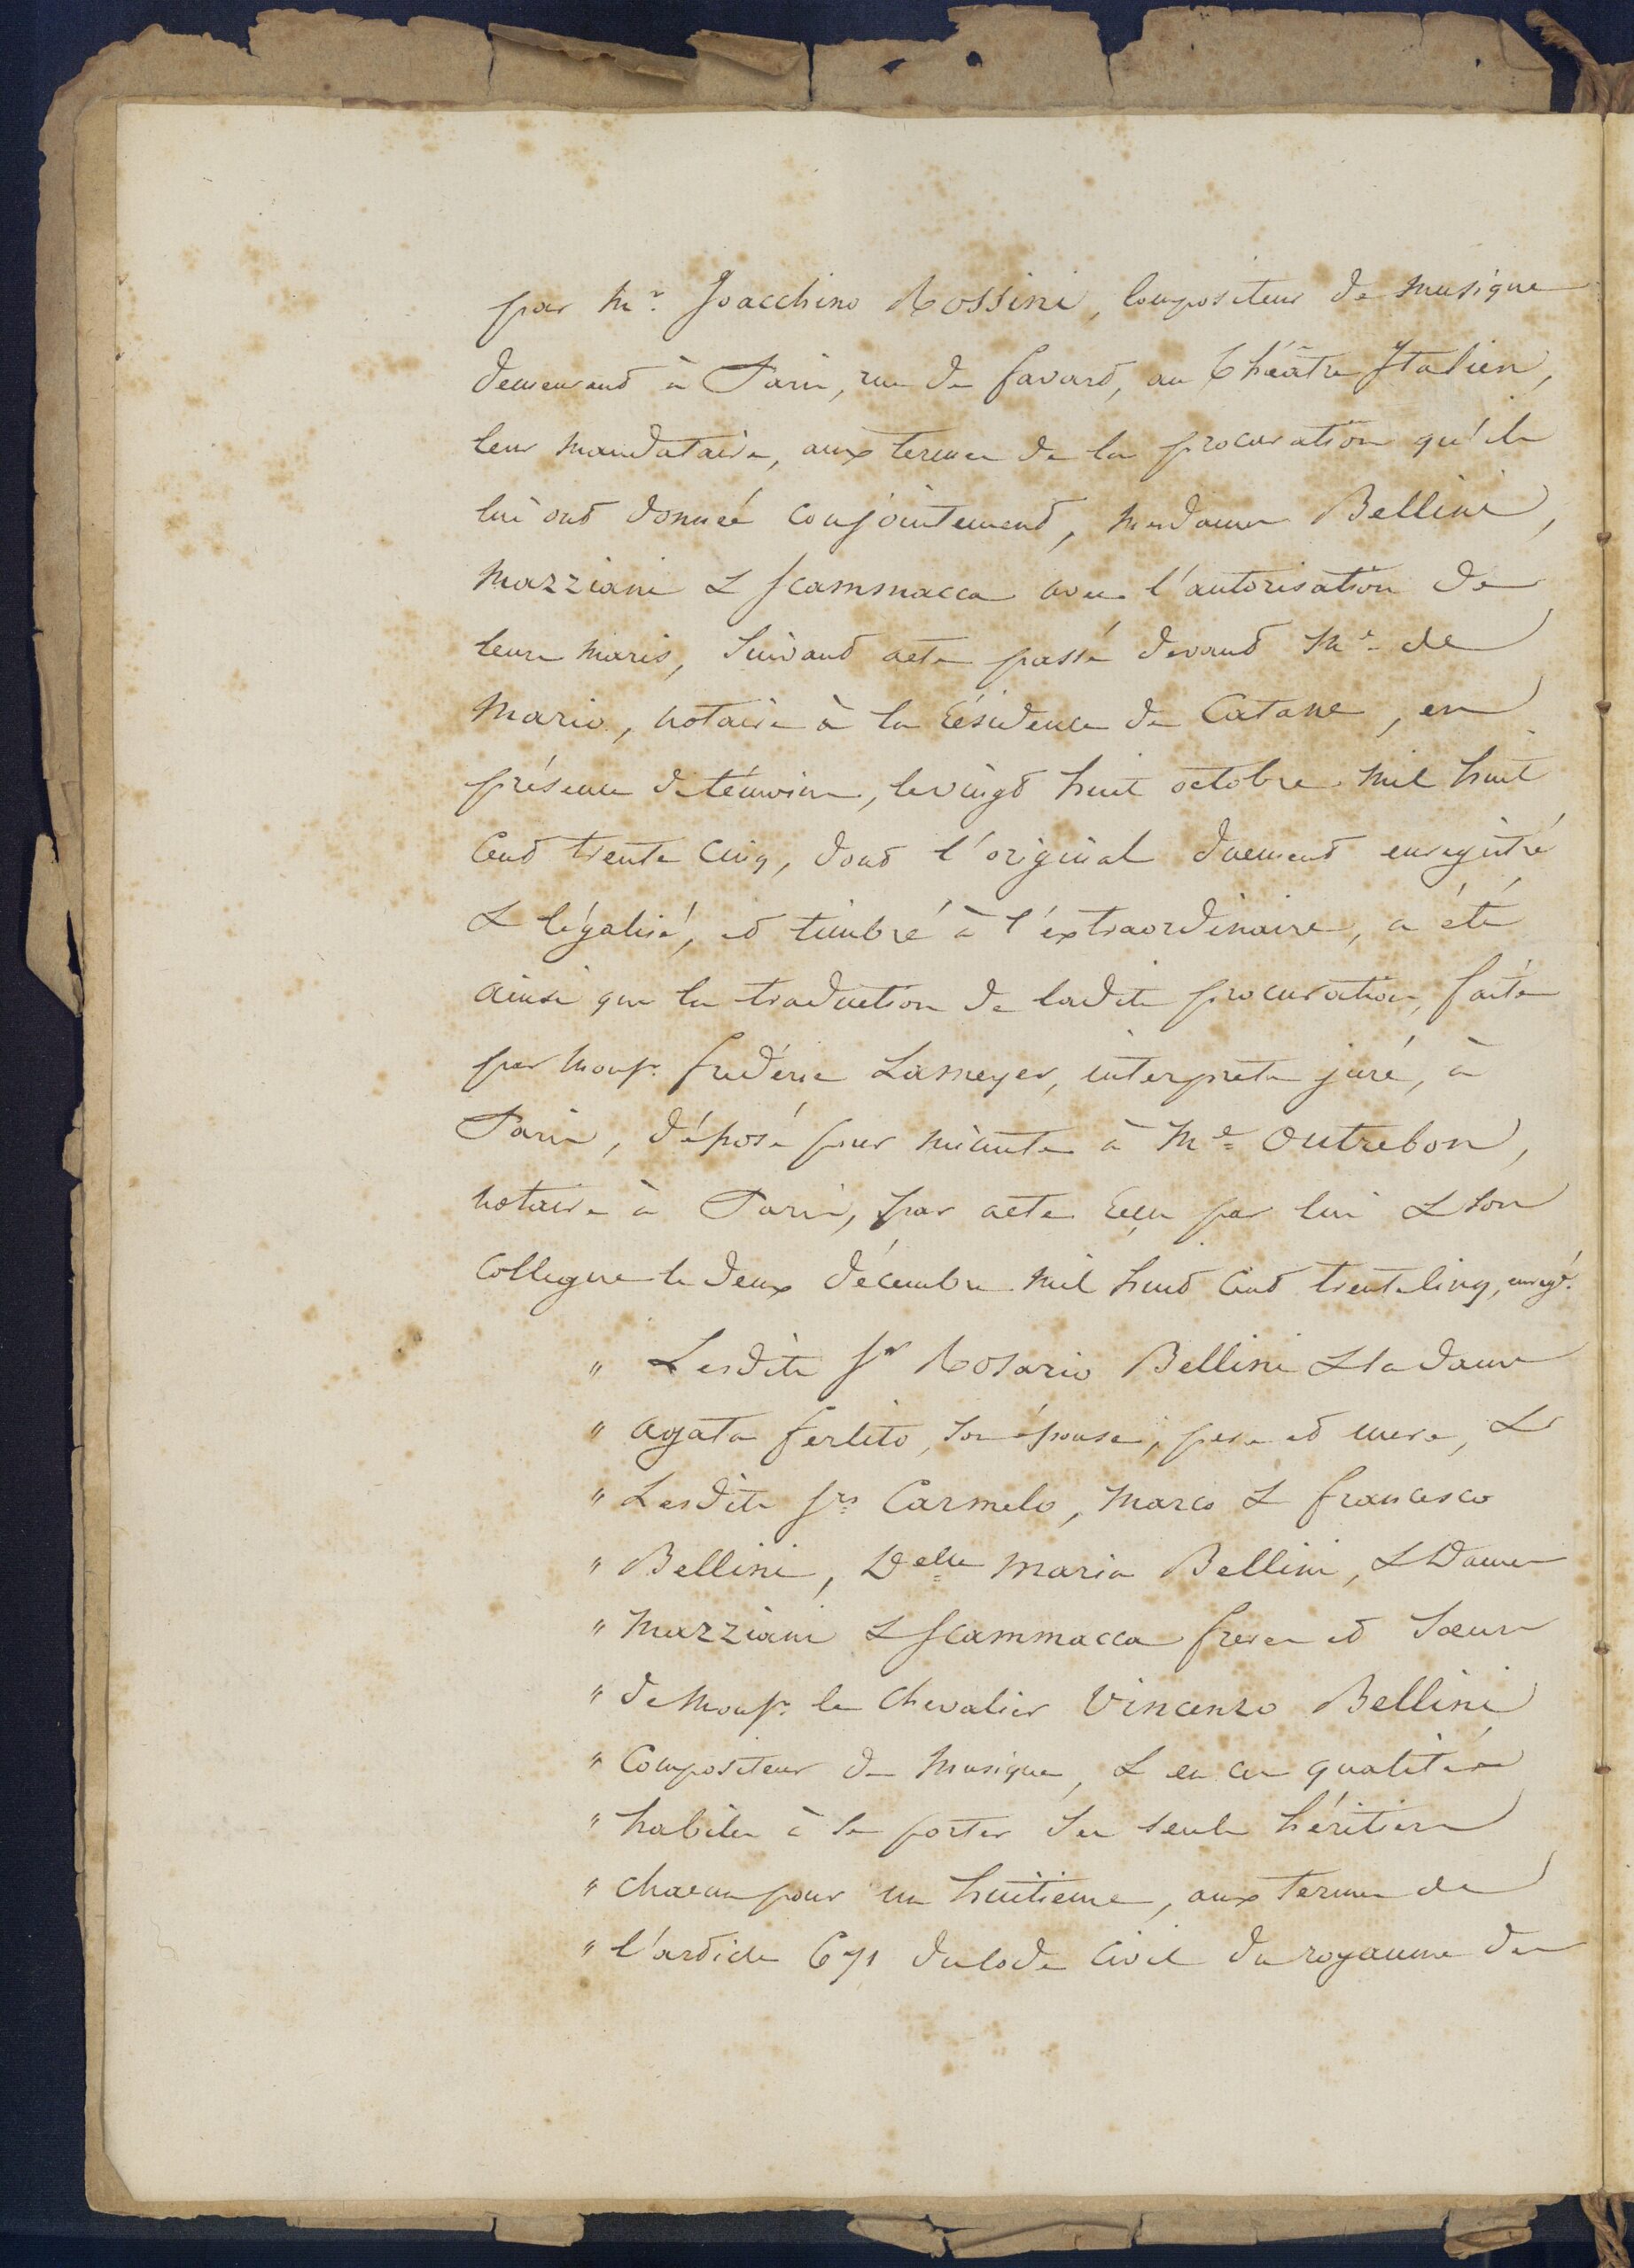 par Mr. Joacchino Rossini, Compositeur de musique
demeurant à Paris, rue de favard, au Théâtre Italien,
leur mandataire, aux termes de la procuration qu'ils
lui ont donnée conjointement, mesdames Bellini,
Mazziani & Scammacca avec l'autorisation de
leurs maris, suivant acte passé devant Me. de
Mario, notaire à la résidence de Catane, en
présence de témoins, le vingt huit octobre mil huit
Cent trente cinq, dont l'original duement enregistré
& légalisé, et timbré à l'éxtraordinaire, a été
ainsi que la traduction de ladite procuration, faite
par Monsr. frédéric Lameyer, interprete juré, à
Paris, déposé pour minute à Me. Outrebon,
notaire à Paris, par acte reçu par lui & son
Collegue le deux décembre mil huit Cent trente Cinq, enregé.
" Lesdits Sr Rosario Bellini & la dame
" agata ferlito, son épouse, pere et mere, &
" Lesdits Srs Carmelo, Marco & francesco
" Bellini, Delle Maria Bellini, & Dames
" Mazziani & Scammacca freres et soeurs
" de Monsr. le chevalier Vincenzo Bellini
" Compositeur de Musique, & en ces qualités
" habiles à se porter ses seuls héritiers
" chacun pour un huitieme, aux termes de
" l'article 671 du Code Civil du royaume des